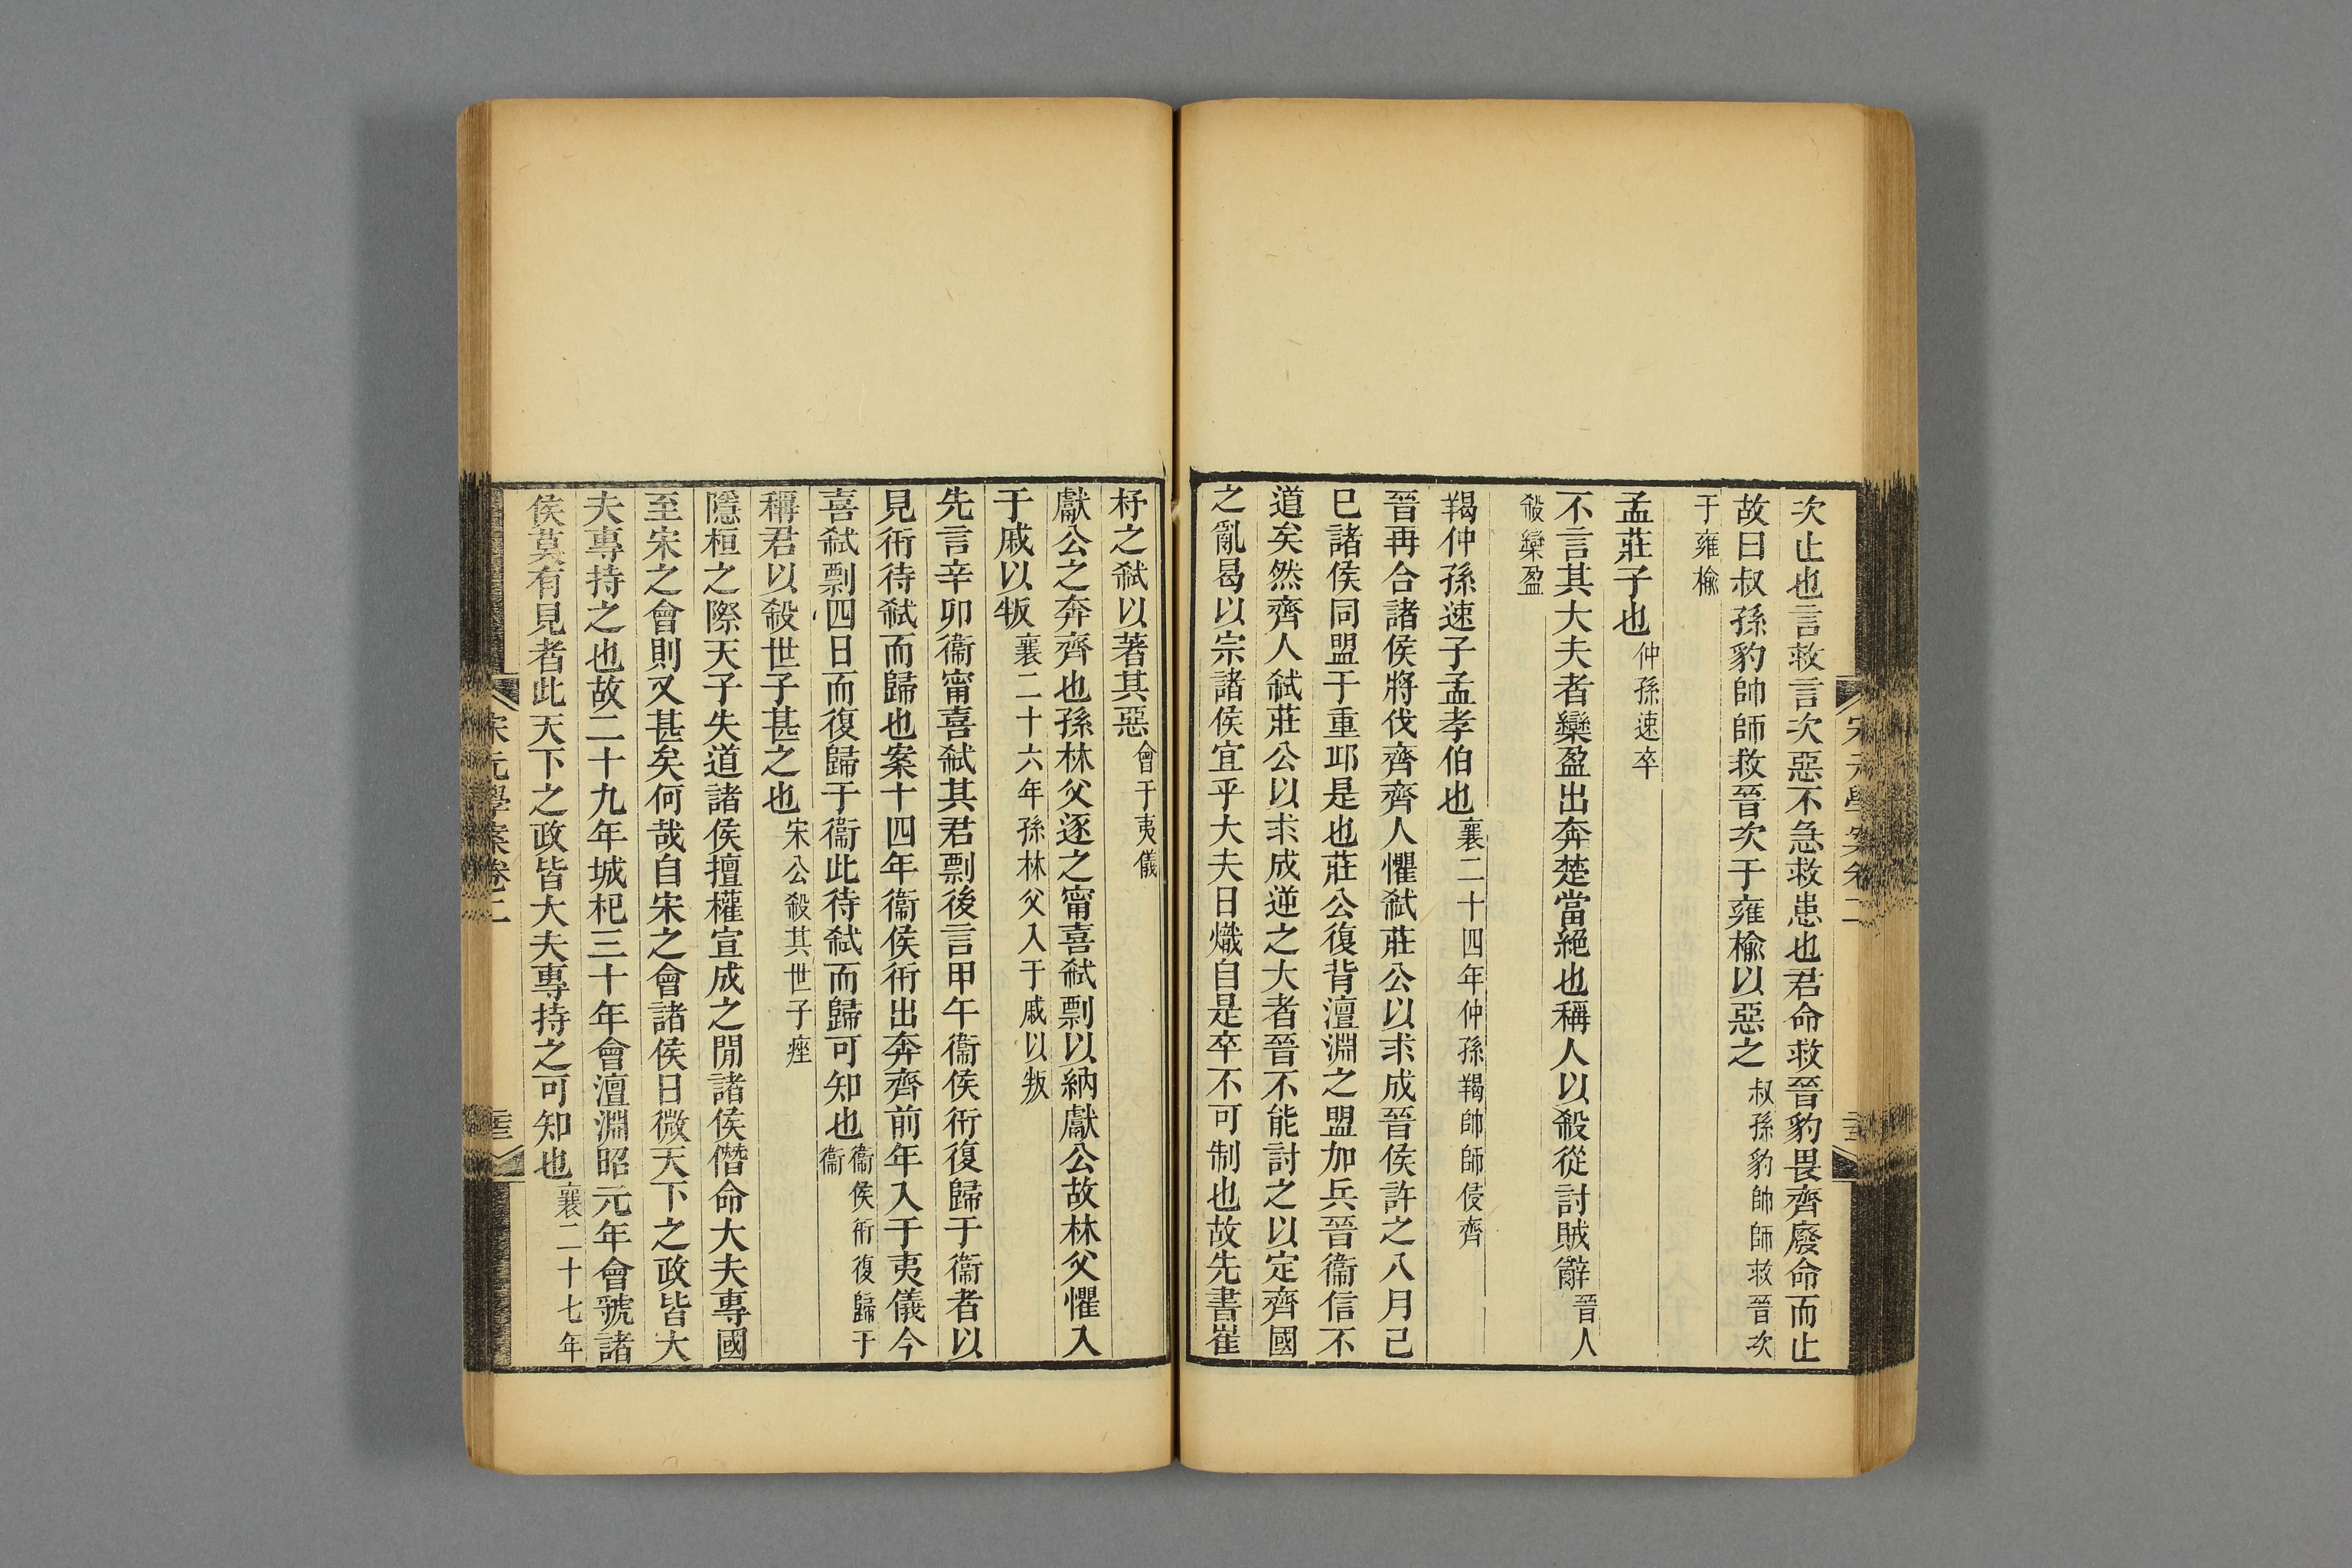 次止也言救言次惡不急救患也君命救晉豹畏齊廢命而止
故曰叔孫豹帥師救晉次于雍榆以惡之叔孫豹帥師救晉次
于雍榆
孟莊子也仲孫速卒
不言其大夫者欒盈出奔楚當絕也稱人以殺從討賊辭晉人
殺欒盈
羯仲孫速子孟孝伯也襄二十四年仲孫羯帥師侵齊
晉再合諸侯將伐齊齊人懼弒莊公以求成晉侯許之八月己
巳諸侯同盟于重邱是也莊公復背澶淵之盟加兵晉衞信不
道矣然齊人弒莊公以求成逆之大者晉不能討之以定齊國
之亂曷以宗諸侯宜乎大夫日熾自是卒不可制也故先書崔
宋元學案卷二
杼之弒以著其惡會于夷儀
獻公之奔齊也孫林父逐之甯喜弒剽以納獻公故林父懼入
于戚以叛襄二十六年孫林父入于戚以叛
先言辛卯衞甯喜弒其君剽後言甲午衞侯衎復歸于衞者以
見衎待弒而歸也案十四年衞侯衎出奔齊前年入于夷儀今
喜弒剽四日而復歸于衞此待弒而歸可知也衞侯衎復歸于
衞
稱君以殺世子甚之也宋公殺其世子痤
隱桓之際天子失道諸侯擅權宣成之閒諸侯僭命大夫專國
至宋之會則又甚矣何哉自宋之會諸侯日微天下之政皆大
夫專持之也故二十九年城杞三十年會澶淵昭元年會虢諸
侯莫有見者此天下之政皆大夫專持之可知也襄二十七年
宋元學案卷二